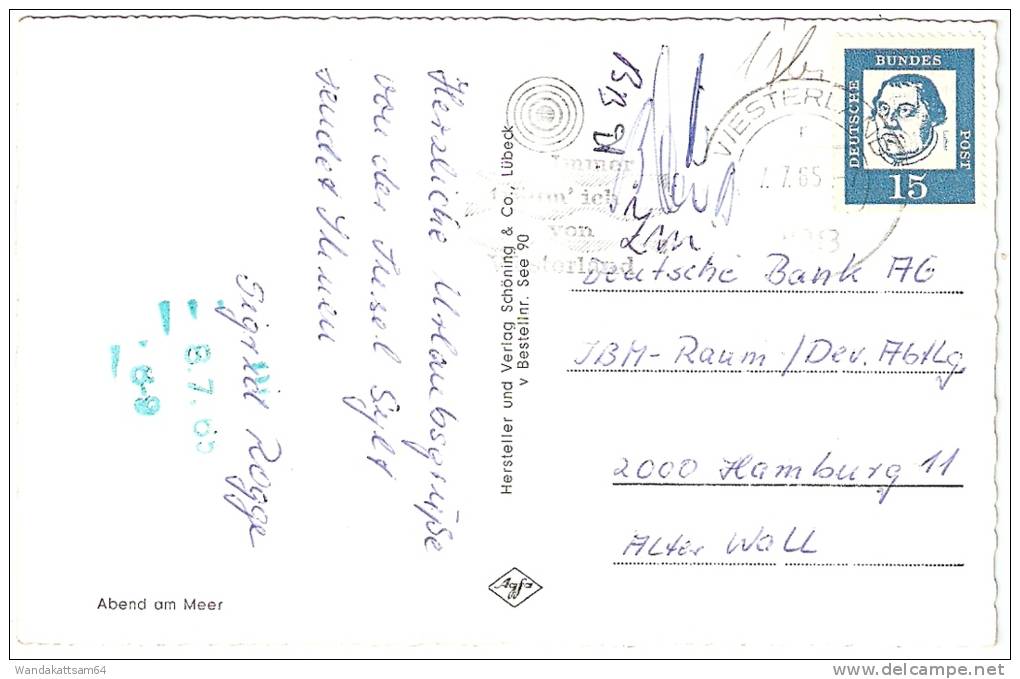 Herzliche Urlaubsgrüße
von der Insel Sylt
sendet Ihnen
Sigrid Rogge
8.7.65
8-9
Abend am Meer
Hersteller und Verlag Schöning & Co., Lübeck
v Bestellnr. See 90
Agfa
Immer
ich
von
Westerland
WESTERLAND
7.65
DEUTSCHE
BUNDES
POST
15
Deutsche Bank AG
IBM-Raum/Dev. Abtlg
2000 Hamburg 11
Alter Wall
Wandakattsam64
delcampe.net